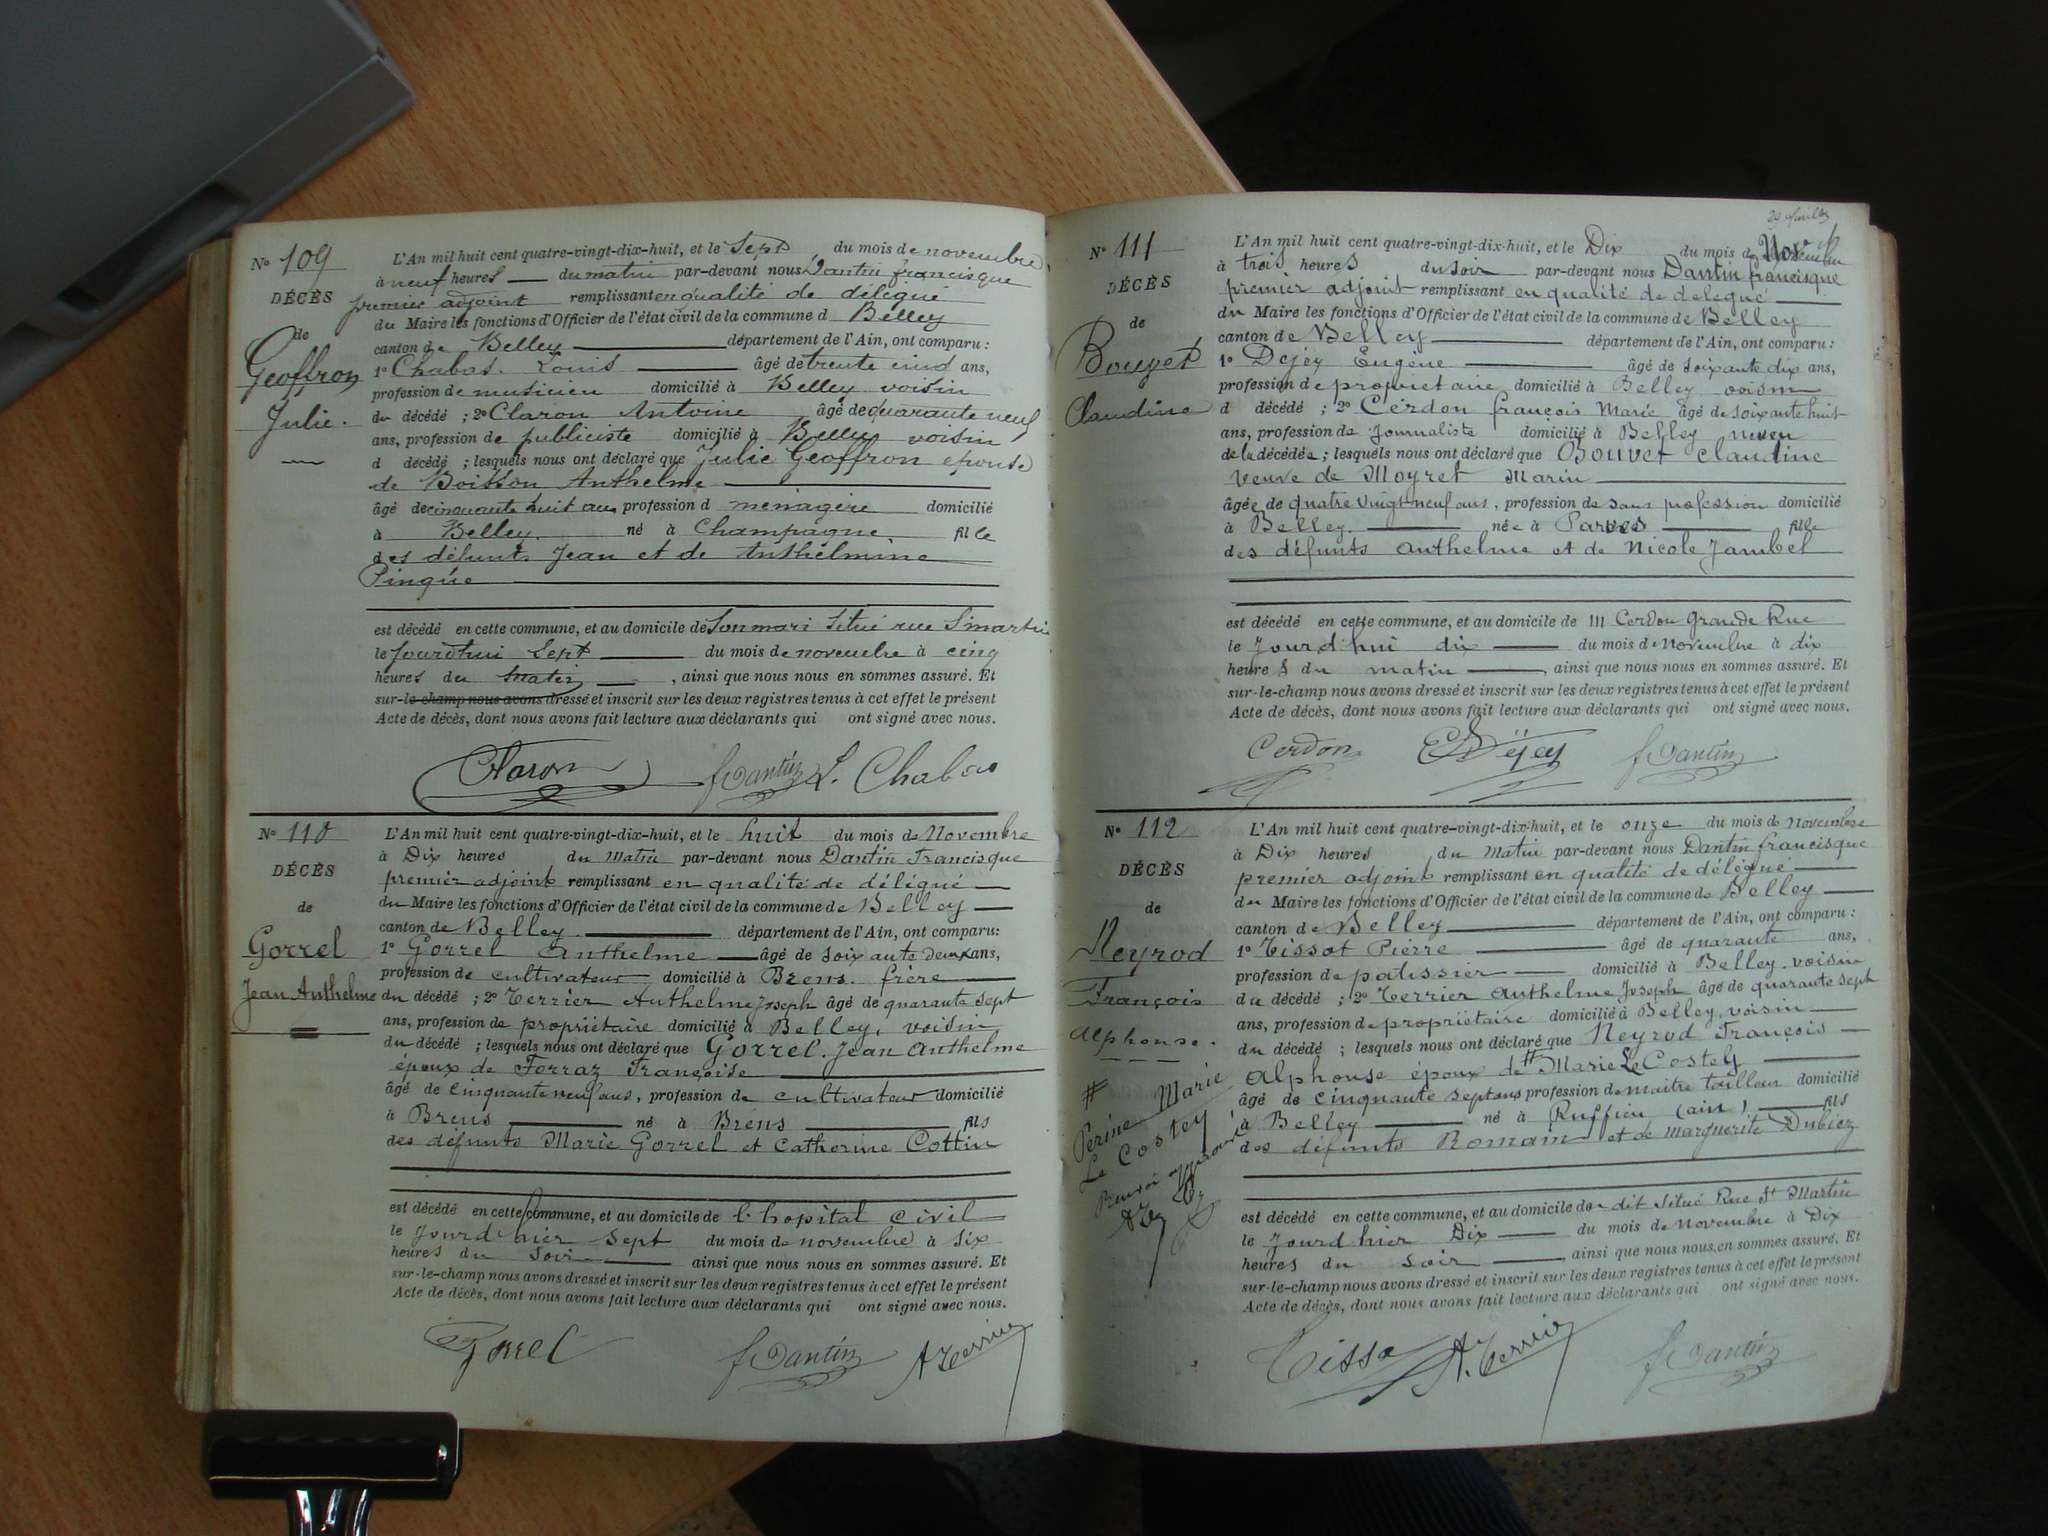 N° 109
DÉCÈS
de
Geoffron
Julie.
L'An mil huit cent quatre-vingt-dix-huit, et le Sept du mois de novembre
à neuf heures du matin par-devant nous Dantin francisque
premier adjoint remplissant en qualité de délégué
du Maire les fonctions d'Officier de l'état civil de la commune d Belley
canton de Belley département de l'Ain, ont comparu :
1° Chabas. Louis âgé de trente cinq ans,
profession de musicien domicilié à Belley voisin
du décédé ; 2° Claron Antoine âgé de quarante neuf
ans, profession de publiciste domicilié à Belley voisin
d décédé ; lesquels nous ont déclaré que Julie Geoffron epouse
de Boisson Anthelme
âgé de cinquante huit ans profession d ménagère domicilié
à Belley. né à Champagne fille
des défunts Jean et de Anthelmine
Pingüe
est décédé en cette commune, et au domicile de Son mari Situé rue St martin
le Jourd'hui Sept du mois de novembre à cinq
heures du matin , ainsi que nous nous en sommes assuré. Et
sur-le-champ nous avons dressé et inscrit sur les deux registres tenus à cet effet le présent
Acte de décès, dont nous avons fait lecture aux déclarants qui ont signé avec nous.
Claron f Dantin L. Chabas
N° 110
DÉCÈS
de
Gorrel
Jean Anthelme
L'An mil huit cent quatre-vingt-dix-huit, et le huit du mois de Novembre
à Dix heures du Matin par-devant nous Dantin Francisque
premier adjoint remplissant en qualité de délégué
du Maire les fonctions d'Officier de l'état civil de la commune de Belley
canton de Belley. département de l'Ain, ont comparu:
1° Gorrel Anthelme âgé de soixante deux ans,
profession de cultivateur domicilié à Brens. frère
du décédé ; 2° Terrier Anthelme Joseph âgé de quarante sept
ans, profession de propriétaire domicilié à Belley, voisin
du décédé ; lesquels nous ont déclaré que Gorrel. Jean Anthelme
époux de Ferraz Françoise
âgé de cinquante neuf ans, profession de cultivateur domicilié
à Brens né à Brens fils
des défunts Marie Gorrel et Catherine Cottin
est décédé en cette commune, et au domicile de l'hopital civil
le Jourd'hier Sept du mois de novembre à six
heures du Soir ainsi que nous nous en sommes assuré. Et
sur-le-champ nous avons dressé et inscrit sur les deux registres tenus à cet effet le présent
Acte de décès, dont nous avons fait lecture aux déclarants qui ont signé avec nous.
Gorrel f Dantin A Terrier
N° 111
DÉCÈS
de
Bouvet
Claudine
L'An mil huit cent quatre-vingt-dix-huit, et le Dix du mois de Novembre
à trois heures du soir par-devant nous Dantin francisque
premier adjoint remplissant en qualité de délégué
du Maire les fonctions d'Officier de l'état civil de la commune de Belley
canton de Belley département de l'Ain, ont comparu :
1° Dejey Eugène âgé de soixante dix ans,
profession de propriétaire domicilié à Belley voisin
d décédé ; 2° Cerdon françois Marie âgé de soixante huit
ans, profession de Journaliste domicilié à Belley neveu
de la décédée ; lesquels nous ont déclaré que Bouvet Claudine
veuve de Moyret Marin
âgée de quatre vingt-neuf ans, profession de sans profession domicilié
à Belley née à Parves fille
des défunts Anthelme et de Nicole Jambel
est décédé en cette commune, et au domicile de M Cerdon Grande Rue
le Jourd'hui dix du mois de Novembre à dix
heures du matin , ainsi que nous nous en sommes assuré. Et
sur-le-champ nous avons dressé et inscrit sur les deux registres tenus à cet effet le présent
Acte de décès, dont nous avons fait lecture aux déclarants qui ont signé avec nous.
Cerdon E Dëjey f Dantin
N° 112
DÉCÈS
de
Neyrod
François
Alphonse.
# Perine Marie
Le Costey
Renvoi approuvé
L'An mil huit cent quatre-vingt-dix-huit, et le onze du mois de Novembre
à Dix heures du Matin par-devant nous Dantin francisque
premier adjoint remplissant en qualité de délégué
du Maire les fonctions d'Officier de l'état civil de la commune de Belley
canton de Belley département de l'Ain, ont comparu :
1° Tissot Pierre âgé de quarante ans,
profession de patissier domicilié à Belley. voisin
du décédé ; 2° Terrier Anthelme Joseph âgé de quarante sept
ans, profession de propriétaire domicilié à Belley, voisin
du décédé ; lesquels nous ont déclaré que Neyrod François
Alphonse époux de # Marie Le Costey
âgé de cinquante sept ans profession de maitre tailleur domicilié
à Belley né à Ruffieu (ain) fils
des défunts Romain et de marguerite Dubiez
est décédé en cette commune, et au domicile du dit Situé Rue St Martin
le Jourd'hier Dix du mois de Novembre à Dix
heures du Soir ainsi que nous nous en sommes assuré. Et
sur-le-champ nous avons dressé et inscrit sur les deux registres tenus à cet effet le présent
Acte de décès, dont nous avons fait lecture aux déclarants qui ont signé avec nous.
Tissot A. Terrier f Dantin